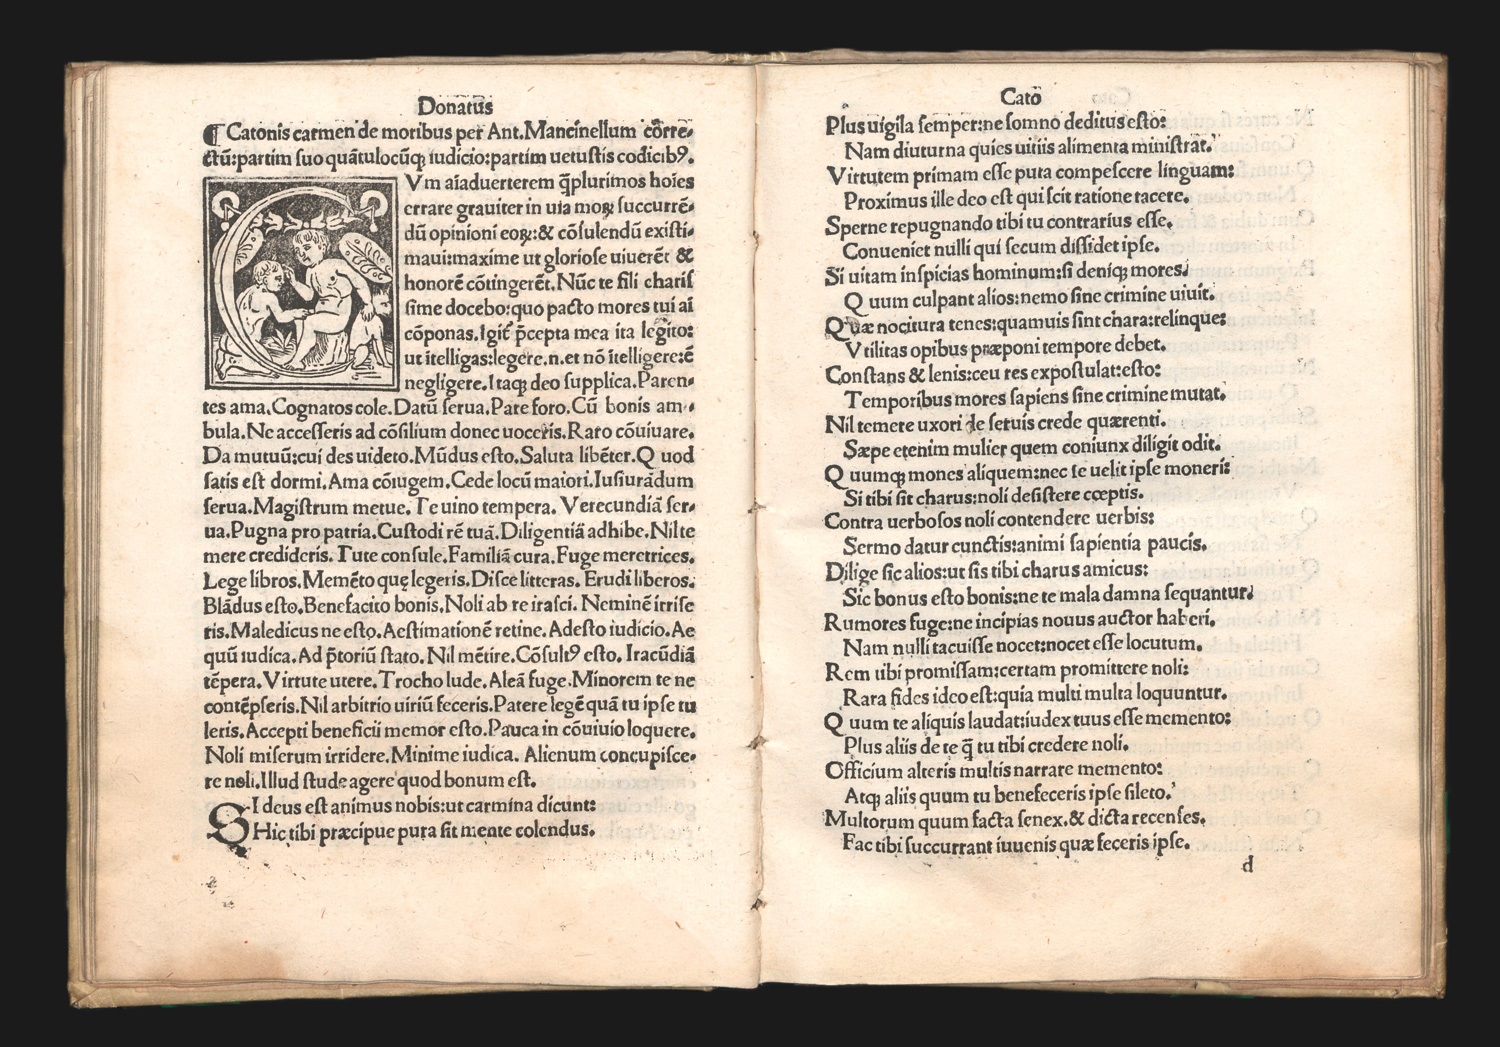 Donatus
¶ Catonis carmen de moribus per Ant.Mancinellum corre⸗
ctũ:partim suo quãtulocũqȝ iudicio:partim uetustis codicibꝰ.
CVm aĩaduerterem q̃plurimos hoĩes
errare grauiter in uia moꝝ succurrẽ⸗
dũ opinioni eoꝝ:& cõsulendũ existi⸗
maui:maxime ut gloriose uiuerẽt &
honorẽ cõtingerẽt.Nũc te fili charis
sime docebo:quo pacto mores tui aĩ
cõponas.Igit̃ p̃cepta mea ita legito:
ut ĩtelligas:legere.n.et nõ ĩtelligere:ẽ
negligere.Itaqȝ deo supplica.Paren⸗
tes ama.Cognatos cole.Datũ serua.Pare foro.Cũ bonis am⸗
bula.Ne accesseris ad cõsilium donec uoceris.Raro cõuiuare.
Da mutuũ:cui des uideto.Mũdus esto.Saluta libẽter.Q uod
satis est dormi.Ama cõiugem.Cede locũ maiori.Iusiurãdum
serua.Magistrum metue.Te uino tempera. Verecundiã ser⸗
ua.Pugna pro patria.Custodi rẽ tuã.Diligentiã adhibe.Nil te
mere credideris. Tute consule.Familiã cura.Fuge meretrices.
Lege libros.Memẽto quę legeris.Disce litteras. Erudi liberos.
Blãdus esto.Benefacito bonis.Noli ab re irasci. Neminẽ irrise
ris.Maledicus ne esto.Aestimationẽ retine.Adesto iudicio.Ae
quũ iudica.Ad p̃toriũ stato.Nil mẽtire.Cõsultꝰ esto. Iracũdiã
tẽpera.Virtute utere.Trocho lude.Aleã fuge.Minorem te ne
contẽpseris.Nil arbitrio uiriũ feceris.Patere legẽ quã tu ipse tu
leris.Accepti beneficii memor esto.Pauca in cõuiuio loquere.
Noli miserum irridere.Minime iudica. Alienum concupisce⸗
re noli.Illud stude agere quod bonum est.
SI deus est animus nobis:ut carmina dicunt:
Hic tibi præcipue pura sit mente colendus.
Cato
Plus uigila semper:ne somno deditus esto:
Nam diuturna quies uitiis alimenta ministrat.
Virtutem primam esse puta compescere linguam:
Proximus ille deo est qui scit ratione tacere.
Sperne repugnando tibi tu contrarius esse.
Conueniet nulli qui secum dissidet ipse.
Si uitam inspicias hominum:si deniqȝ mores:
Q uum culpant alios:nemo sine crimine uiuit.
Quæ nocitura tenes:quamuis sint chara:relinque:
Vtilitas opibus præponi tempore debet.
Constans & lenis:ceu res expostulat:esto:
Temporibus mores sapiens sine crimine mutat.
Nil temere uxori de seruis crede quærenti.
Sæpe etenim mulier quem coniunx diligit odit.
Q uumqȝ mones aliquem:nec se uelit ipse moneri:
Si tibi sit charus:noli desistere cœptis.
Contra uerbosos noli contendere uerbis:
Sermo datur cunctis:animi sapientia paucis.
Dilige sic alios:ut sis tibi charus amicus:
Sic bonus esto bonis:ne te mala damna sequantur:
Rumores fuge:ne incipias nouus auctor haberi.
Nam nulli tacuisse nocet:nocet esse locutum.
Rem tibi promissam:certam promittere noli:
Rara fides ideo est:quia multi multa loquuntur.
Q uum te aliquis laudat:iudex tuus esse memento:
Plus aliis de te q̃ tu tibi credere noli.
Officium alteris multis narrare memento:
Atqȝ aliis quum tu benefeceris ipse sileto.
Multorum quum facta senex.& dicta recenses.
Fac tibi succurrant iuuenis quæ feceris ipse.
d